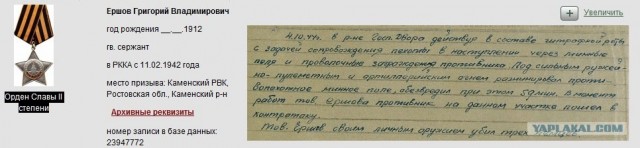 Орден Славы II
степени
Ершов Григорий Владимирович
год рождения __.__.1912
гв. сержант
в РККА с 11.02.1942 года
место призыва: Каменский РВК,
Ростовская обл., Каменский р-н
Архивные реквизиты
номер записи в базе данных:
23947772
Увеличить
4.10.44г. в р-не Госп. Двора действуя в составе штрафной роты
с задачей сопровождения пехоты в наступлении через минные
поля и проволочные заграждения противника. Под сильным ружей-
но-пулеметным и артиллерийским огнем разминировал проти-
вопехотное минное поле, обезвредив при этом 5 мин. В момент
работ тов. Ершова противник на данном участке пошел в
контратаку.
Тов. Ершов своим личным оружием убил трех
YAPLAKAL.COM